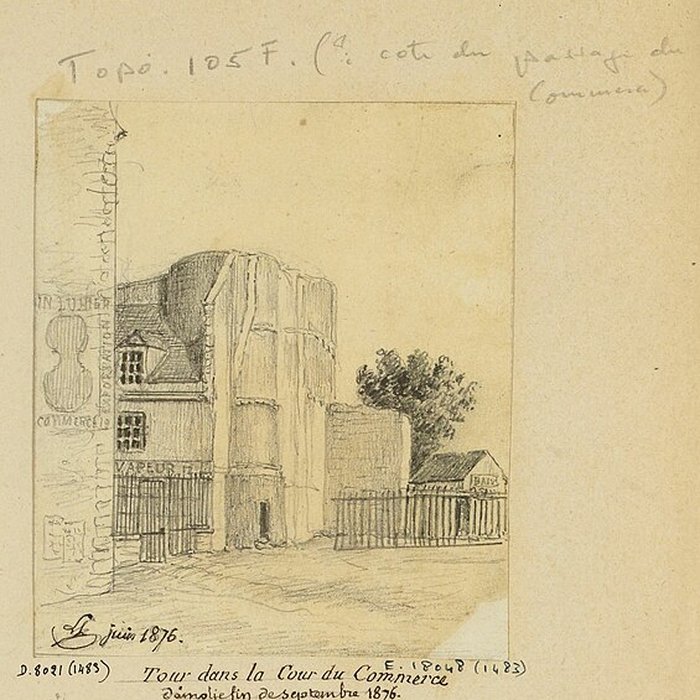 Topo. 105 F. (
coté du passage du
Commerce)
COMMERCE
EXPORTATION
VAPEUR
BAINS
juin 1876.
D.8021 (1483)
E. 18048 (1483)
Tour dans la Cour du Commerce
Démolie fin de septembre 1876.